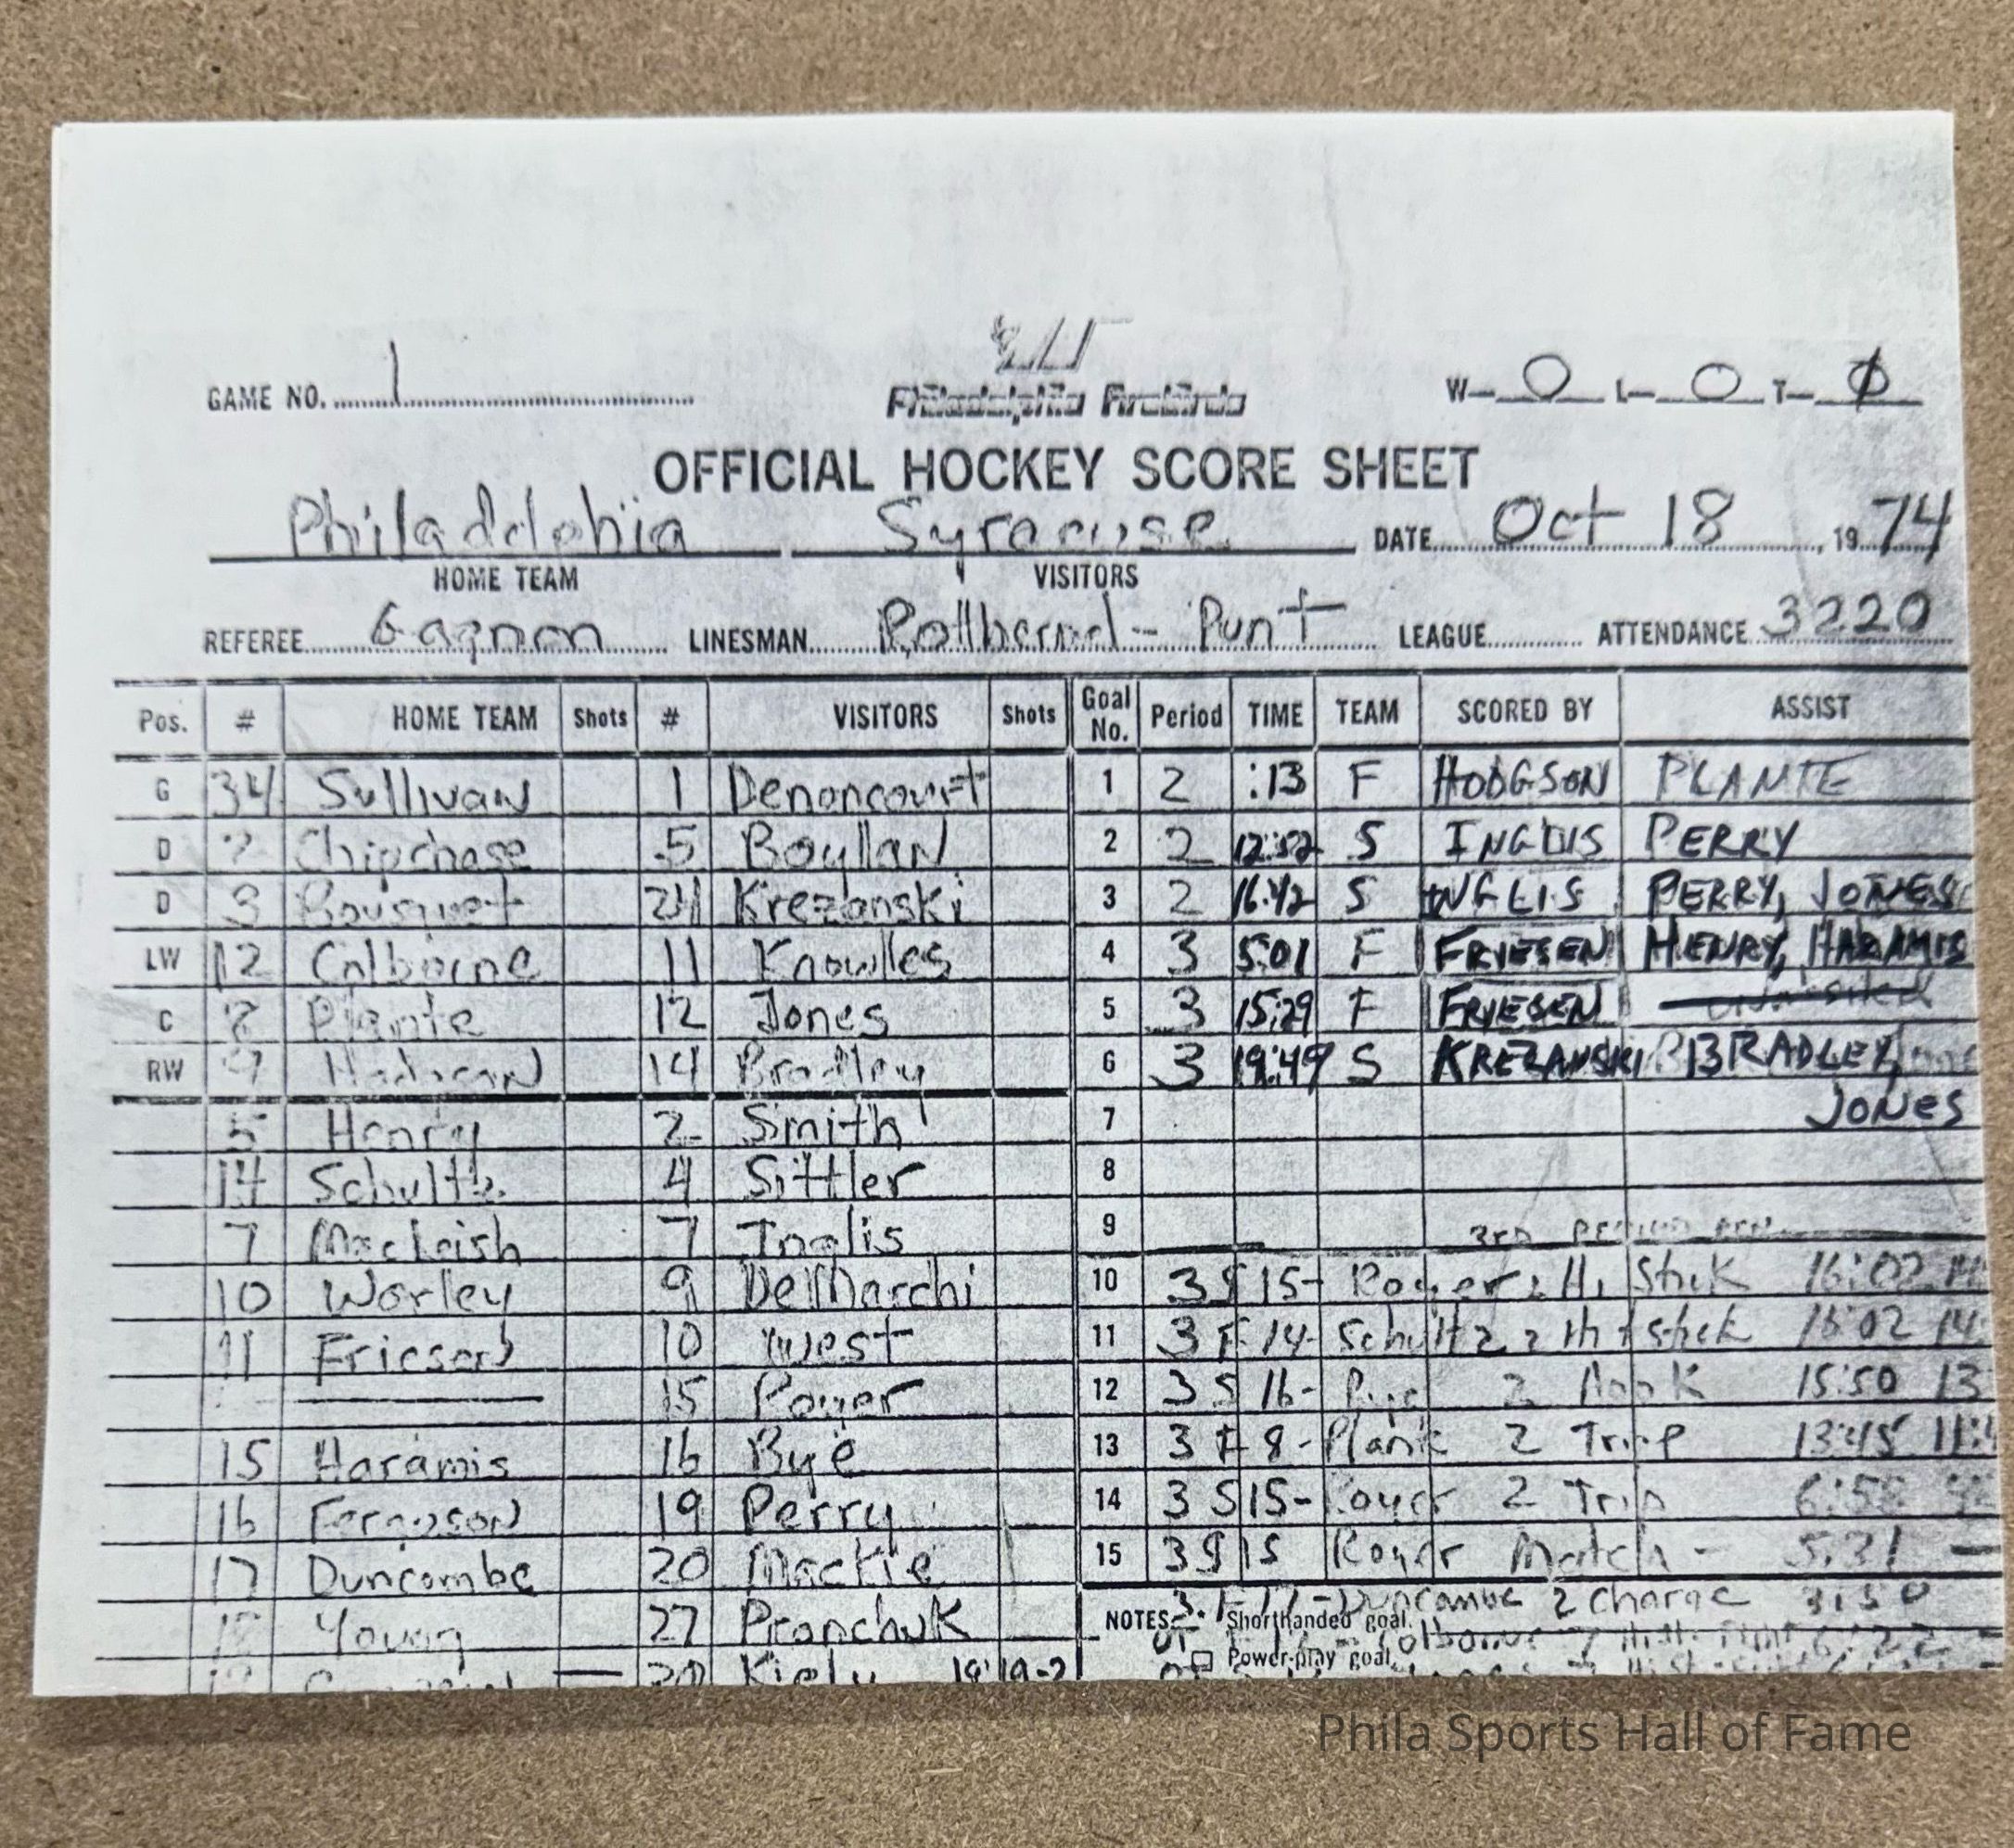 GAME NO. 1
Philadelphia Firebirds
W— 0 L— 0 T— 0
OFFICIAL HOCKEY SCORE SHEET
Philadelphia Syracuse DATE Oct 18, 1974
HOME TEAM VISITORS
REFEREE Gagnon LINESMAN - Punt LEAGUE ATTENDANCE 3220
Pos. # HOME TEAM Shots # VISITORS Shots Goal No. Period TIME TEAM SCORED BY ASSIST
G 34 Sullivan 1 Denoncourt 1 2 :13 F HODGSON PLANTE
D 2 Chipchase 5 Boyllan 2 2 12:52 S INGLIS PERRY
D 3 Bousquet 24 Krezanski 3 2 16:42 S INGLIS PERRY, JONES
LW 12 Colborne 11 Knowles 4 3 5:01 F FRIESEN HENRY, HARAMIS
C 8 Plante 12 Jones 5 3 15:29 F FRIESEN
RW 9 Hodgson 14 Bradley 6 3 19:49 S KREZANSKI BRADLEY,
5 Henry 2 Smith 7 JONES
14 Schultz 4 Sittler 8
7 MacLeish 7 Inglis 9 3RD PERIOD PEN.
10 Worley 9 DelMarchi 10 3 S 15- Royer 2 Hi Stick 16:02
11 Friesen 10 West 11 3 F 14- Schultz 2 Hi stick 16:02 14
15 Royer 12 3 S 16- 2 Hook 15:50 13
15 Haramis 16 Bye 13 3 F 8- 2 Trip 13:45
16 Ferguson 19 Perry 14 3 S 15- Royer 2 Trip
17 Duncombe 20 Mackie 15 3 S 15 Royer Match - 5:31 —
Young 27 Pronchuk 3 F 17 - Duncombe 2 Charge 3:50
NOTES: Shorthanded goal.
Kiely 18:19-2 Power-play goal.
Phila Sports Hall of Fame